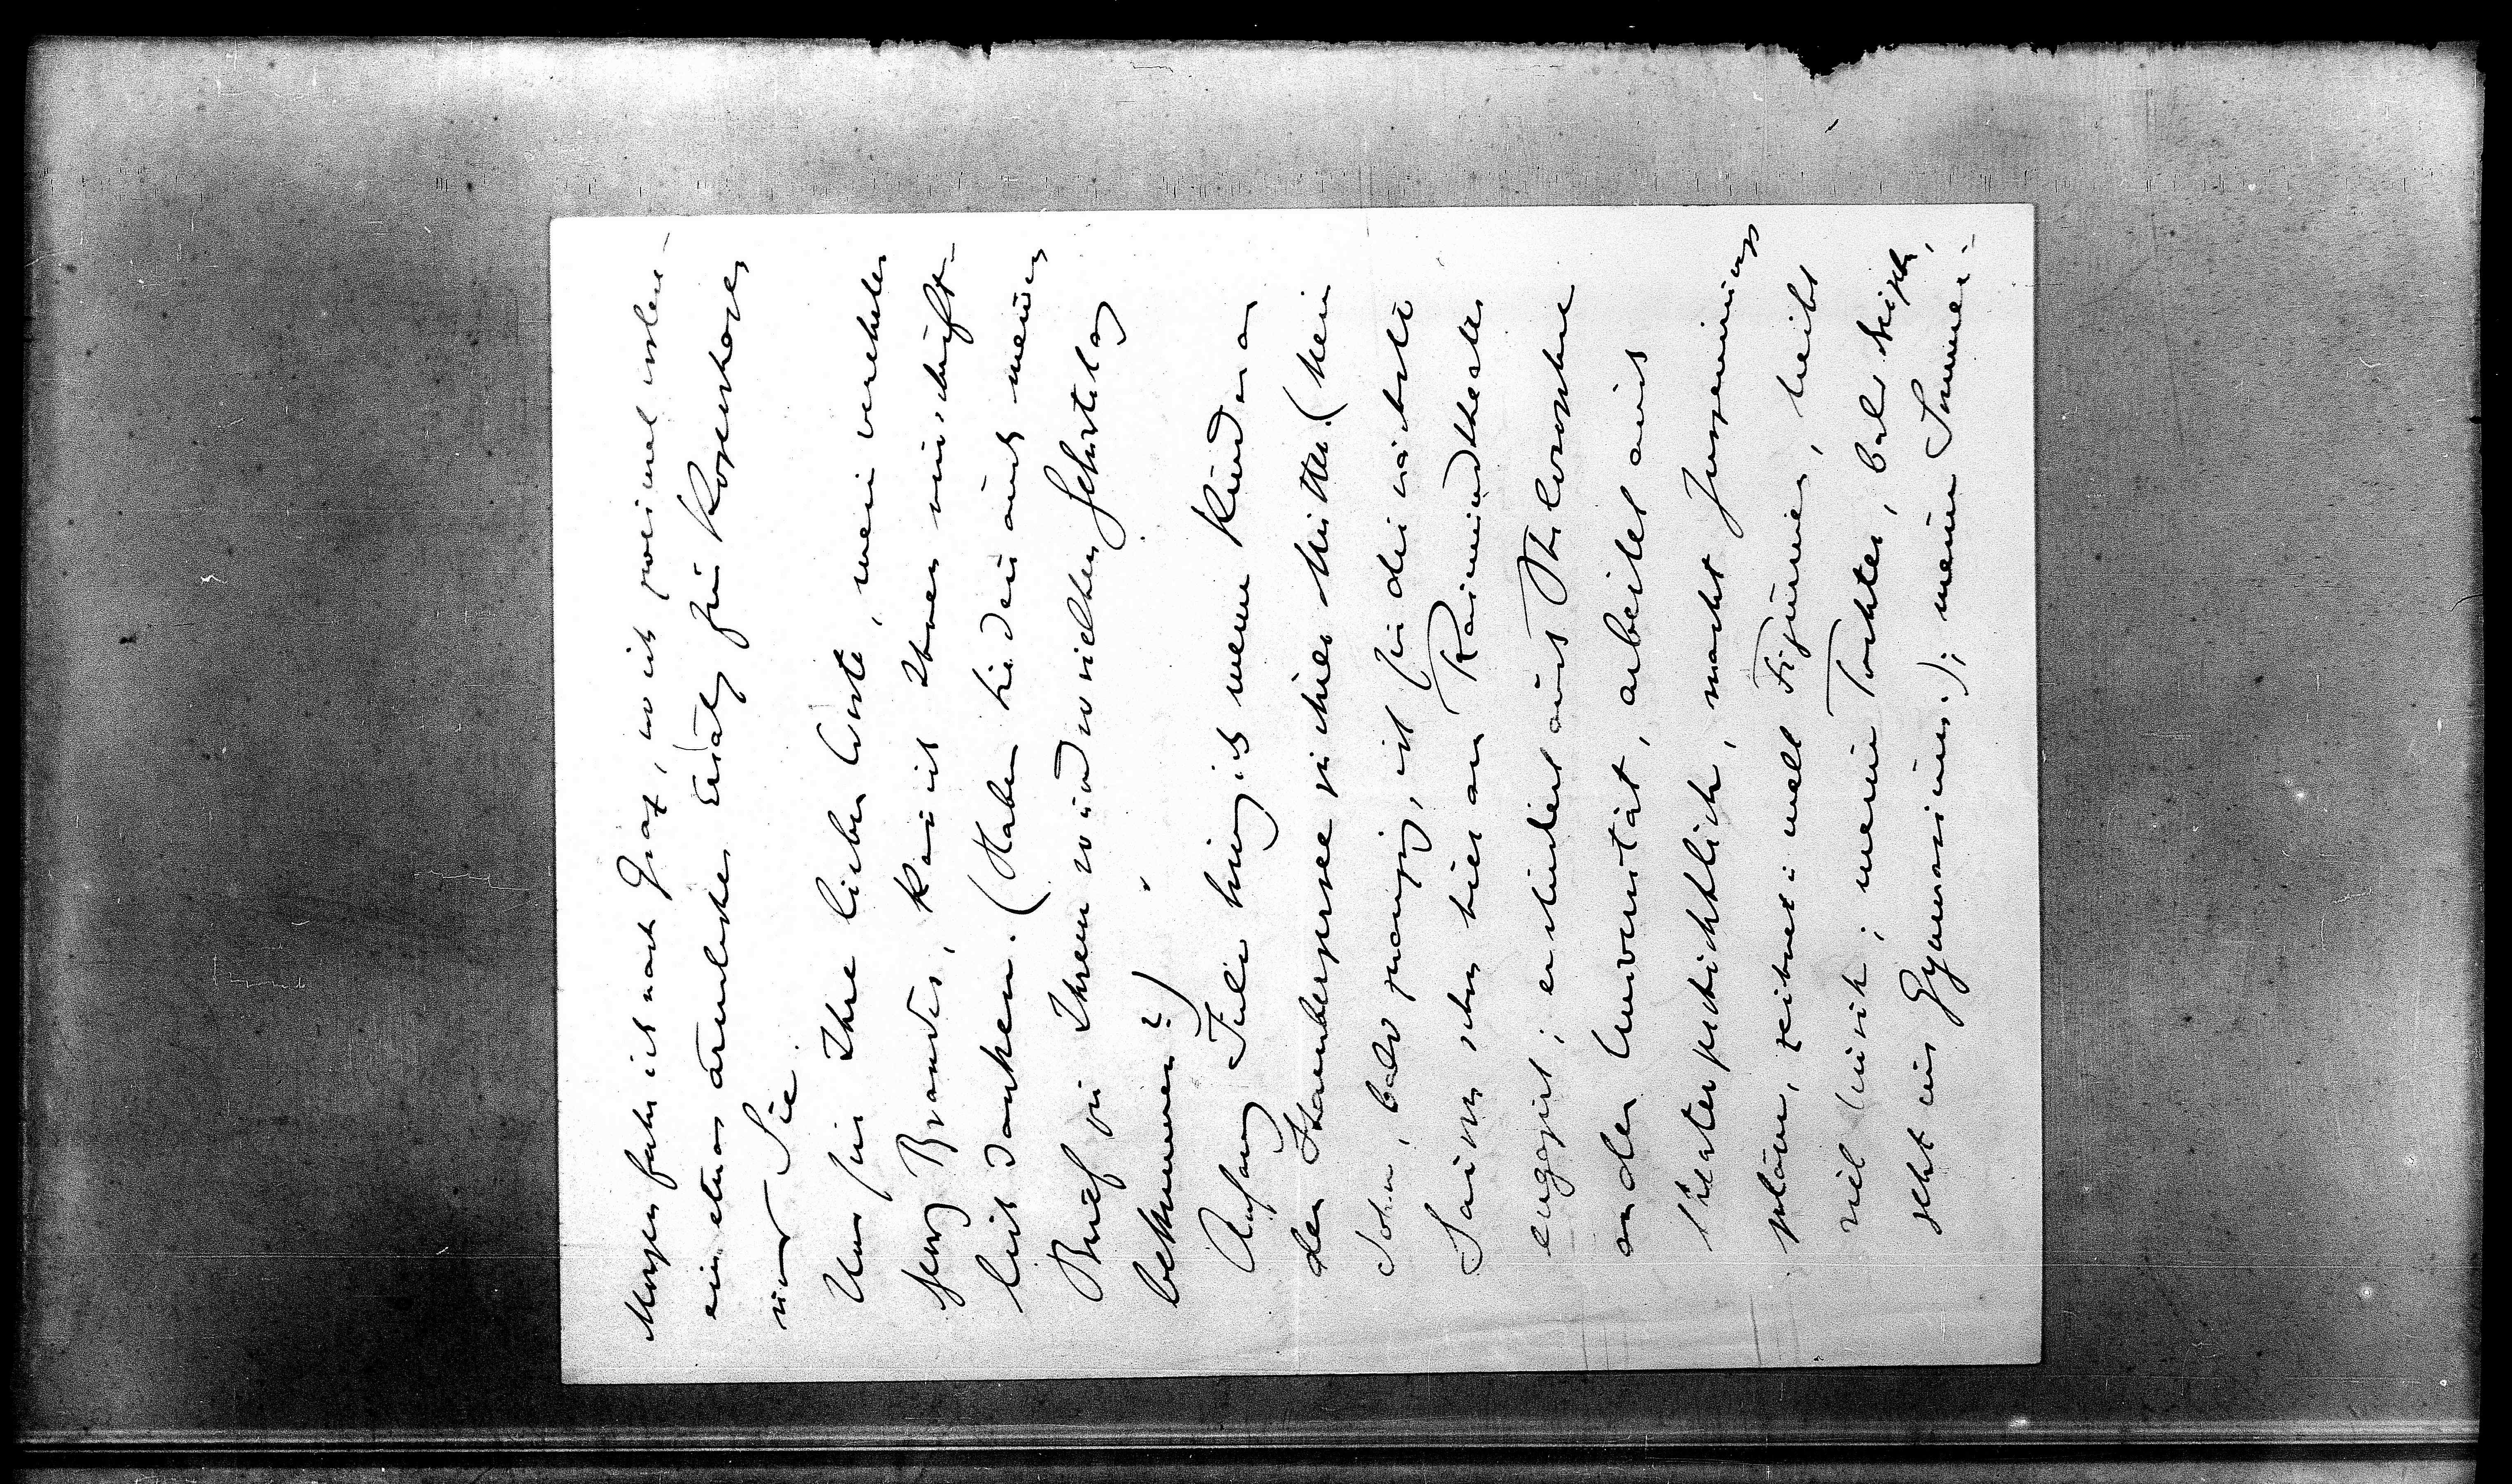 Morgen fahr ich nach Graz, wo ich zweimal vorlese –
ein etwas ärmlicher Ersatz für Kopenhagen
und Sie.
Nur für Ihre lieben Worte, mein verehrter
Georg Brandes, kann ich Ihnen nun schrift-
lich danken. (Haben Sie denn auch meinen
Brief zu Ihrem so und so vielten Geburtstag
bekommen?)
Anfang Juli bring ich meine Kinder an
den Starnbergersee zu ihrer Mutter. (Mein
Sohn, bald zwanzig, ist für die nächste
Saison schon hier am Raimundtheater
engagirt; er studiert auch Philosophie
an der Universität, arbeitet auch
theatergeschichtlich, macht Inszenirungs
pläne, zeichnet: well Figurinen, treibt
viel Musik; meine Tochter, bald dreizehn,
geht ins Gymnasium.); meine Sommer-